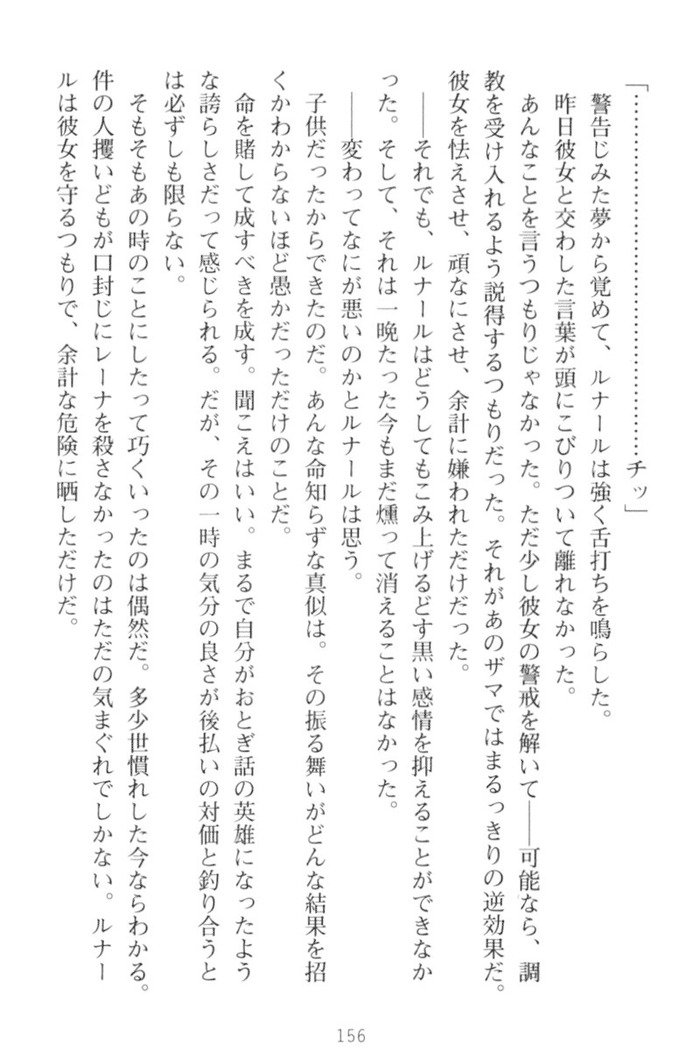 「……………………………………………チッ」
　警告じみた夢から覚めて、ルナールは強く舌打ちを鳴らした。
　昨日彼女と交わした言葉が頭にこびりついて離れなかった。
　あんなことを言うつもりじゃなかった。ただ少し彼女の警戒を解いて――可能なら、調
教を受け入れるよう説得するつもりだった。それがあのザマではまるっきりの逆効果だ。
彼女を怯えさせ、頑なにさせ、余計に嫌われただけだった。
　――それでも、ルナールはどうしてもこみ上げるどす黒い感情を抑えることができなか
った。そして、それは一晩たった今もまだ燻って消えることはなかった。
　――変わってなにが悪いのかとルナールは思う。
　子供だったからできたのだ。あんな命知らずな真似は。その振る舞いがどんな結果を招
くかわからないほど愚かだっただけのことだ。
　命を賭して成すべきを成す。聞こえはいい。まるで自分がおとぎ話の英雄になったよう
な誇らしさだって感じられる。だが、その一時の気分の良さが後払いの対価と釣り合うと
は必ずしも限らない。
　そもそもあの時のことにしたって巧くいったのは偶然だ。多少世慣れした今ならわかる。
件の人攫いどもが口封じにレーナを殺さなかったのはただの気まぐれでしかない。ルナー
ルは彼女を守るつもりで、余計な危険に晒しただけだ。
156